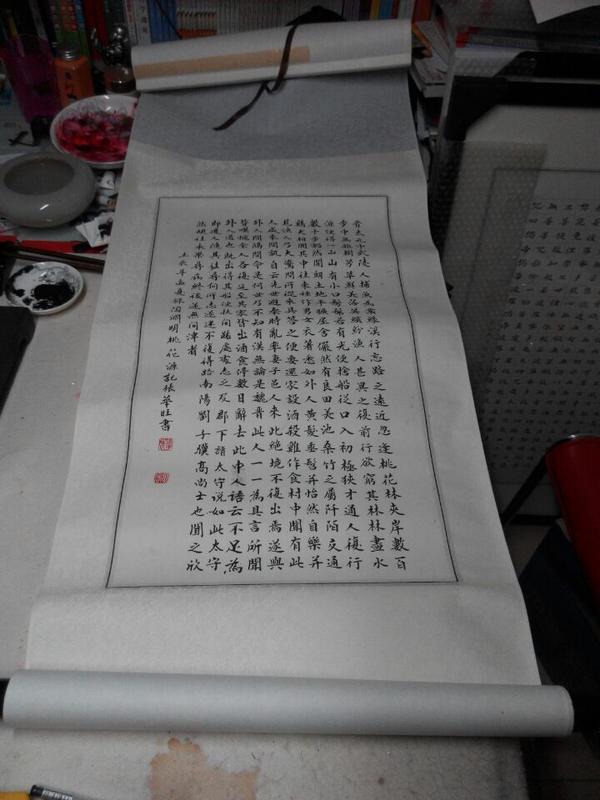 晉太元中武陵人捕魚為業緣溪行忘路之遠近忽逢桃花林夾岸數百
步中無雜樹芳草鮮美落英繽紛漁人甚異之復前行欲窮其林林盡水
源便得一山山有小口髣髴若有光便捨船從口入初極狹才通人復行
數十步豁然開朗土地平曠屋舍儼然有良田美池桑竹之屬阡陌交通
雞犬相聞其中往來種作男女衣著悉如外人黃髮垂髫并怡然自樂并
見漁人乃大驚問所從來具答之便要還家設酒殺雞作食村中聞有此
人咸來問訊自云先世避秦時亂率妻子邑人來此絕境不復出焉遂與
外人間隔問今是何世乃不知有漢無論是魏晉此人一一為具言所聞
皆嘆惋餘人各復延至其家皆出酒食停數日辭去此中人語云不足為
外人道也既出得其船便扶向路處處志之及郡下詣太守說如此太守
即遣人隨其往尋向所志遂迷不復得路南陽劉子驥高尚士也聞之欣
然規往未果尋病終後遂無問津者
壬辰年孟夏錄陶淵明桃花源記張華旺書